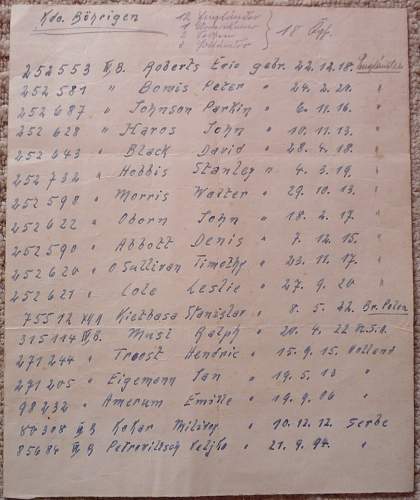 Kdo. Böhrigen
12 Engländer
1 Amerikaner
2 Serben
3 Holländer
18 Kgf.
252553 IV/B. Roberts Eric gebr. 22.12.18. Engländer
252581 " Bomis Peter " 24.2.21. "
252687 " Johnson Parkin " 6.11.16. "
252628 " Haros John " 10.11.13. "
252643 " Black David " 28.4.18. "
252732 " Hobbis Stanley " 4.3.19. "
252598 " Morris Walter " 29.10.13. "
252622 " Oborn John " 18.2.17. "
252590 " Abbott Denis " 7.12.15. "
252620 " O'Sullivan Timothy " 23.11.17. "
252621 " Cole Leslie " 27.9.20 "
75512 Kielbasa Stanislav " 8.5.22. Br. Polen
315114 IV/B. Must Ralph " 20.4.22 U.S.A.
271244 " Troost Hendric " 15.9.15. Holland
271205 " Eigemann Jan " 19.5.13 "
98232 " Amerum Emille " 19.9.06 "
80308 Kokar Milivoy " 10.12.12. Serbe
85684 Petrovittsch Veljko " 21.9.94. "